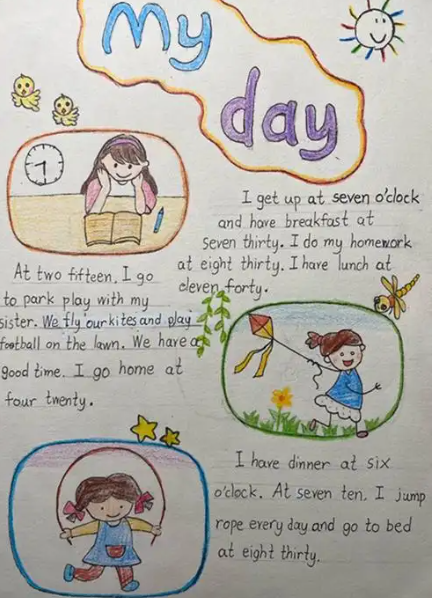 My
day
I get up at seven o'clock
and have breakfast at
seven thirty. I do my homework
at eight thirty. I have lunch at
eleven forty.
At two fifteen, I go
to park play with my
sister. We fly our kites and play
football on the lawn. We have a
good time. I go home at
four twenty.
I have dinner at six
o'clock. At seven ten. I jump
rope every day and go to bed
at eight thirty.